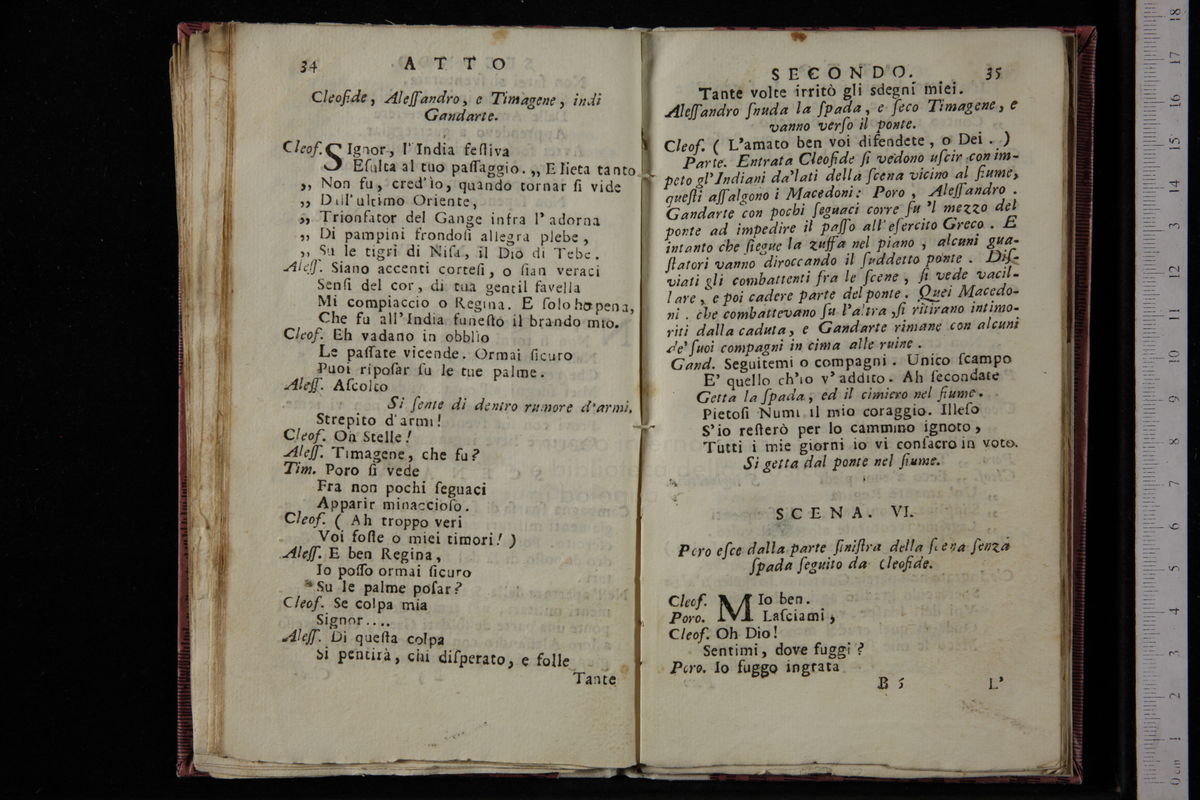 34 ATTO
Cleofide, Aleſſandro, e Timagene, indi
Gandarte.
Cleof. SIgnor, l'India feſtiva
Eſulta al tuo paſſaggio. „ E lieta tanto
„ Non fu, cred'io, quando tornar ſi vide
„ Dall'ultimo Oriente,
„ Trionfator del Gange infra l'adorna
„ Di pampini frondoſi allegra plebe,
„ Su le tigri di Niſa, il Dio di Tebe.
Aleſſ. Siano accenti corteſi, o ſian veraci
Senſi del cor, di tua gentil favella
Mi compiaccio o Regina. E ſolo ho pena,
Che fu all'India funeſto il brando mio.
Cleof. Eh vadano in obblio
Le paſſate vicende. Ormai ſicuro
Puoi ripoſar ſu le tue palme.
Aleſſ. Aſcolto
Si ſente di dentro rumore d'armi.
Strepito d'armi!
Cleof. Oh Stelle!
Aleſſ. Timagene, che fu?
Tim. Poro ſi vede
Fra non pochi ſeguaci
Apparir minaccioſo.
Cleof. ( Ah troppo veri
Voi foſte o miei timori! )
Aleſſ. E ben Regina,
Io poſſo ormai ſicuro
Su le palme poſar?
Cleof. Se colpa mia
Signor....
Aleſſ. Di queſta colpa
Si pentirà, chi diſperato, e folle
Tante
SECONDO. 35
Tante volte irritò gli sdegni miei.
Aleſſandro ſnuda la ſpada, e ſeco Timagene, e
vanno verſo il ponte.
Cleof. ( L'amato ben voi difendete, o Dei. )
Parte. Entrata Cleofide ſi vedono uſcir con im-
peto gl'Indiani da'lati della ſcena vicino al fiume,
queſti aſſalgono i Macedoni: Poro, Aleſſandro.
Gandarte con pochi ſeguaci corre ſu 'l mezzo del
ponte ad impedire il paſſo all'eſercito Greco. E
intanto che ſiegue la zuffa nel piano, alcuni gua-
ſtatori vanno diroccando il ſuddetto ponte. Diſ-
viati gli combattenti fra le ſcene, ſi vede vacil-
lare, e poi cadere parte del ponte. Quei Macedo-
ni. che combattevano ſu l'altra, ſi ritirano intimo-
riti dalla caduta, e Gandarte rimane con alcuni
de' ſuoi compagni in cima alle ruine.
Gand. Seguitemi o compagni. Unico ſcampo
E' quello ch'io v'addito. Ah ſecondate
Getta la ſpada, ed il cimiero nel fiume.
Pietoſi Numi il mio coraggio. Illeſo
S'io reſterò per lo cammino ignoto,
Tutti i mie giorni io vi conſacro in voto.
Si getta dal ponte nel fiume.
SCENA. VI.
Poro eſce dalla parte ſiniſtra della ſcena ſenza
ſpada ſeguito da Cleofide.
Cleof. MIo ben.
Poro. Laſciami,
Cleof. Oh Dio!
Sentimi, dove fuggi?
Poro. Io fuggo ingrata
B 5 L'